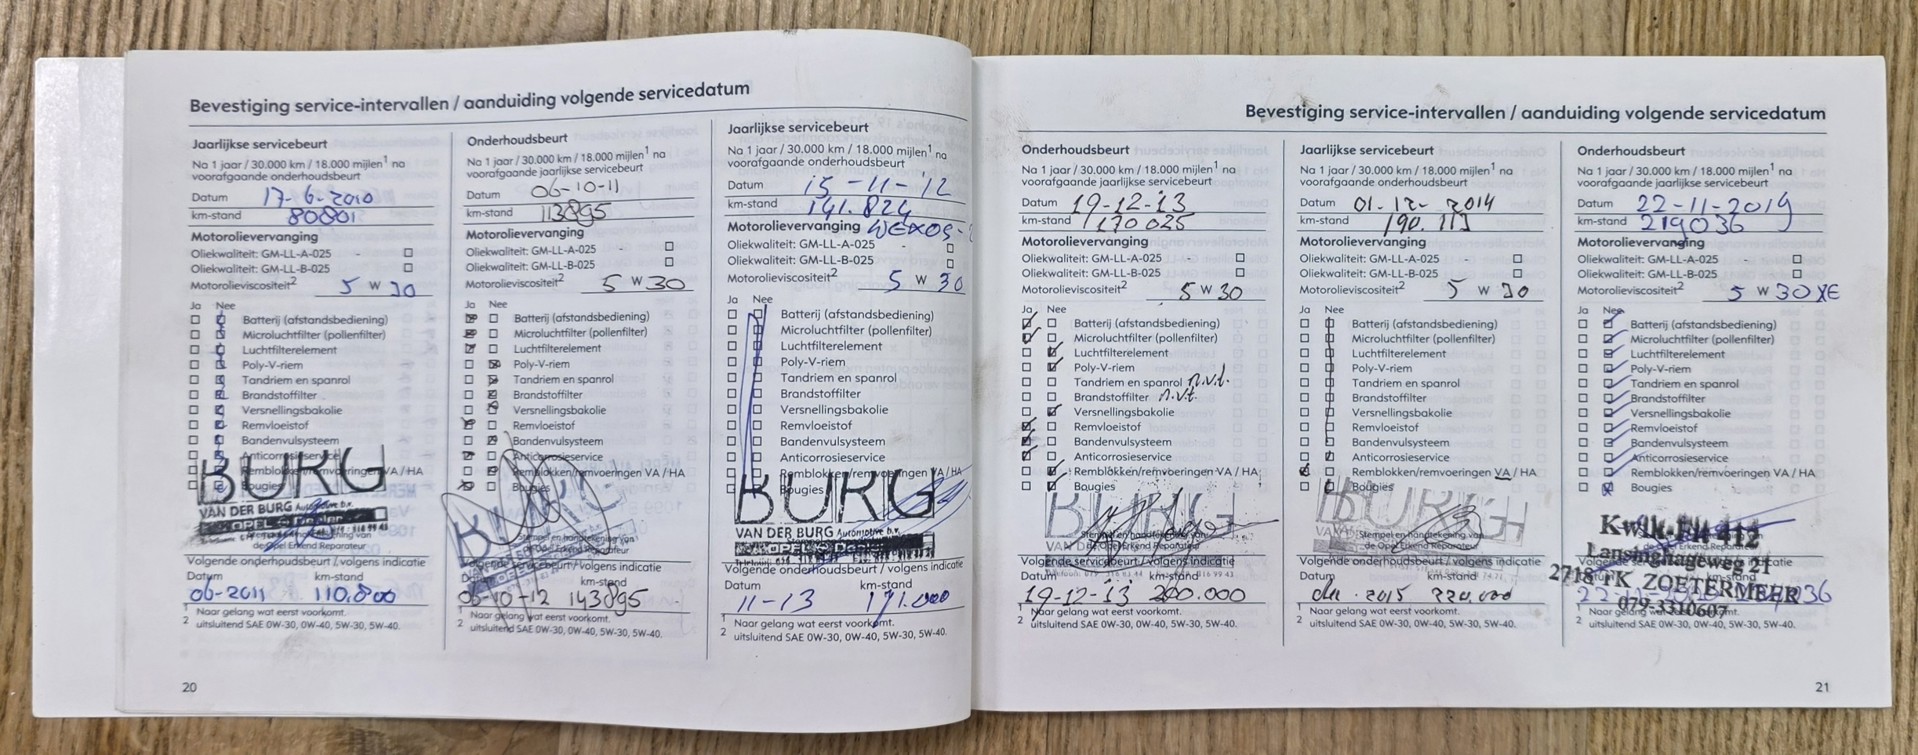 Bevestiging service-intervallen / aanduiding volgende servicedatum
Jaarlijkse servicebeurt
Na 1 jaar / 30.000 km / 18.000 mijlen¹ na
voorafgaande onderhoudsbeurt
Datum 17-6-2010
km-stand 80801
Motorolievervanging
Oliekwaliteit: GM-LL-A-025 -
Oliekwaliteit: GM-LL-B-025
Motorolieviscositeit² 5 W 30
Ja Nee
Batterij (afstandsbediening)
Microluchtfilter (pollenfilter)
Luchtfilterelement
Poly-V-riem
Tandriem en spanrol
Brandstoffilter
Versnellingsbakolie
Remvloeistof
Bandenvulsysteem
Anticorrosieservice
Remblokken/remvoeringen VA / HA
Bougies
BURG
VAN DER BURG Automotive b.v.
OPEL
de Opel Erkend Reparateur
Volgende onderhoudsbeurt / volgens indicatie
Datum km-stand
06-2011 110.800
¹ Naar gelang wat eerst voorkomt.
² uitsluitend SAE 0W-30, 0W-40, 5W-30, 5W-40.
20
Onderhoudsbeurt
Na 1 jaar / 30.000 km / 18.000 mijlen¹ na
voorafgaande jaarlijkse servicebeurt
Datum 06-10-11
km-stand 113895
Motorolievervanging
Oliekwaliteit: GM-LL-A-025 -
Oliekwaliteit: GM-LL-B-025
Motorolieviscositeit² 5 W 30
Ja Nee
Batterij (afstandsbediening)
Microluchtfilter (pollenfilter)
Luchtfilterelement
Poly-V-riem
Tandriem en spanrol
Brandstoffilter
Versnellingsbakolie
Remvloeistof
Bandenvulsysteem
Anticorrosieservice
Remblokken/remvoeringen VA / HA
Bougies
BURG
Stempel en handtekening van
de Opel Erkend Reparateur
Volgende servicebeurt / volgens indicatie
km-stand
06-10-12 143895
¹ Naar gelang wat eerst voorkomt.
² uitsluitend SAE 0W-30, 0W-40, 5W-30, 5W-40.
Jaarlijkse servicebeurt
Na 1 jaar / 30.000 km / 18.000 mijlen¹ na
voorafgaande onderhoudsbeurt
Datum 15-11-'12
km-stand 141.824
Motorolievervanging
Oliekwaliteit: GM-LL-A-025 -
Oliekwaliteit: GM-LL-B-025
Motorolieviscositeit² 5 W 30
Ja Nee
Batterij (afstandsbediening)
Microluchtfilter (pollenfilter)
Luchtfilterelement
Poly-V-riem
Tandriem en spanrol
Brandstoffilter
Versnellingsbakolie
Remvloeistof
Bandenvulsysteem
Anticorrosieservice
Remblokken/remvoeringen VA / HA
Bougies
BURG
VAN DER BURG Automotive b.v.
OPEL
Volgende onderhoudsbeurt / volgens indicatie
Datum km-stand
11-13 171.000
¹ Naar gelang wat eerst voorkomt.
² uitsluitend SAE 0W-30, 0W-40, 5W-30, 5W-40.
Bevestiging service-intervallen / aanduiding volgende servicedatum
Onderhoudsbeurt
Na 1 jaar / 30.000 km / 18.000 mijlen¹ na
voorafgaande jaarlijkse servicebeurt
Datum 19-12-13
km-stand 170025
Motorolievervanging
Oliekwaliteit: GM-LL-A-025 -
Oliekwaliteit: GM-LL-B-025
Motorolieviscositeit² 5 W 30
Ja Nee
Batterij (afstandsbediening)
Microluchtfilter (pollenfilter)
Luchtfilterelement
Poly-V-riem
Tandriem en spanrol n.v.t.
Brandstoffilter n.v.t.
Versnellingsbakolie
Remvloeistof
Bandenvulsysteem
Anticorrosieservice
Remblokken/remvoeringen VA / HA
Bougies
BURG
Stempel en handtekening van
de Opel Erkend Reparateur
Volgende servicebeurt / volgens indicatie
Datum km-stand
19-12-13 200.000
¹ Naar gelang wat eerst voorkomt.
² uitsluitend SAE 0W-30, 0W-40, 5W-30, 5W-40.
Jaarlijkse servicebeurt
Na 1 jaar / 30.000 km / 18.000 mijlen¹ na
voorafgaande onderhoudsbeurt
Datum 01-12-2014
km-stand 190.113
Motorolievervanging
Oliekwaliteit: GM-LL-A-025 -
Oliekwaliteit: GM-LL-B-025
Motorolieviscositeit² 5 W 30
Ja Nee
Batterij (afstandsbediening)
Microluchtfilter (pollenfilter)
Luchtfilterelement
Poly-V-riem
Tandriem en spanrol
Brandstoffilter
Versnellingsbakolie
Remvloeistof
Bandenvulsysteem
Anticorrosieservice
Remblokken/remvoeringen VA / HA
Bougies
BURG
Stempel en handtekening van
de Opel Erkend Reparateur
Volgende onderhoudsbeurt / volgens indicatie
Datum km-stand
2015 220.000
¹ Naar gelang wat eerst voorkomt.
² uitsluitend SAE 0W-30, 0W-40, 5W-30, 5W-40.
Onderhoudsbeurt
Na 1 jaar / 30.000 km / 18.000 mijlen¹ na
voorafgaande jaarlijkse servicebeurt
Datum 22-11-2019
km-stand 219036
Motorolievervanging
Oliekwaliteit: GM-LL-A-025 -
Oliekwaliteit: GM-LL-B-025
Motorolieviscositeit² 5 W 30 XE
Ja Nee
Batterij (afstandsbediening)
Microluchtfilter (pollenfilter)
Luchtfilterelement
Poly-V-riem
Tandriem en spanrol
Brandstoffilter
Versnellingsbakolie
Remvloeistof
Bandenvulsysteem
Anticorrosieservice
Remblokken/remvoeringen VA / HA
Bougies
Kwik-Fit 412
Lansinghageweg 21
2718 FK ZOETERMEER
079-3310607
¹ Naar gelang wat eerst voorkomt.
² uitsluitend SAE 0W-30, 0W-40, 5W-30, 5W-40.
21